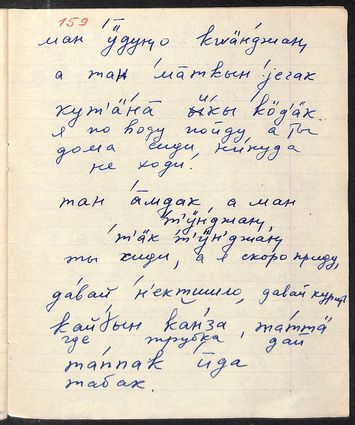 159
ман ӱдуңо квäнджаң
а тан ма̄ткын jегак
кут'ä́на̄ ӣкы кöд'äк.
я по воду пойду, а ты
дома сиди, никуда
не ходи.
тан а̄мдак, а ман
т'ӱнджаң,
т'äк т'ӱн'джаң
ты сиди, а я скоро приду,
дава́й н'ектышло, давай курит
кайɣын ка́нза, та́ттä
где трубка дай
та́ппак и́да
табак.